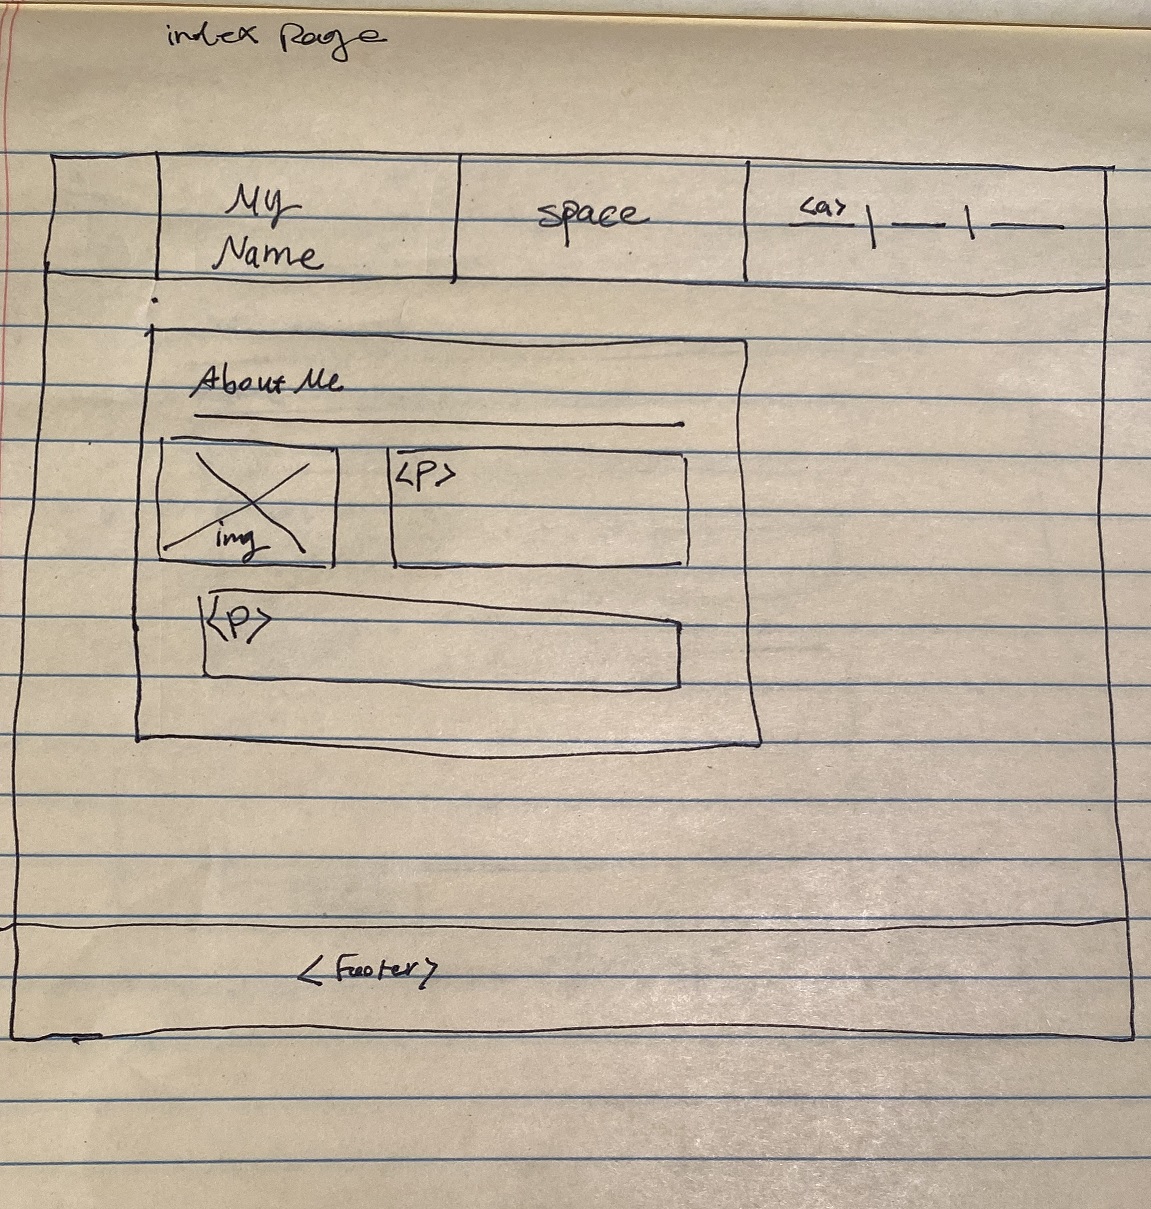 index Page
My
Name
space
<a>
About Me
<P>
img
<P>
<Footer>